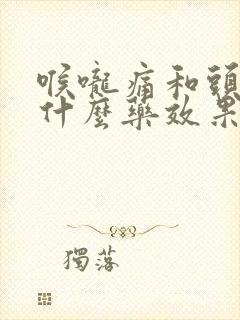 喉嚨痛和頭
什麼藥效果
獨落